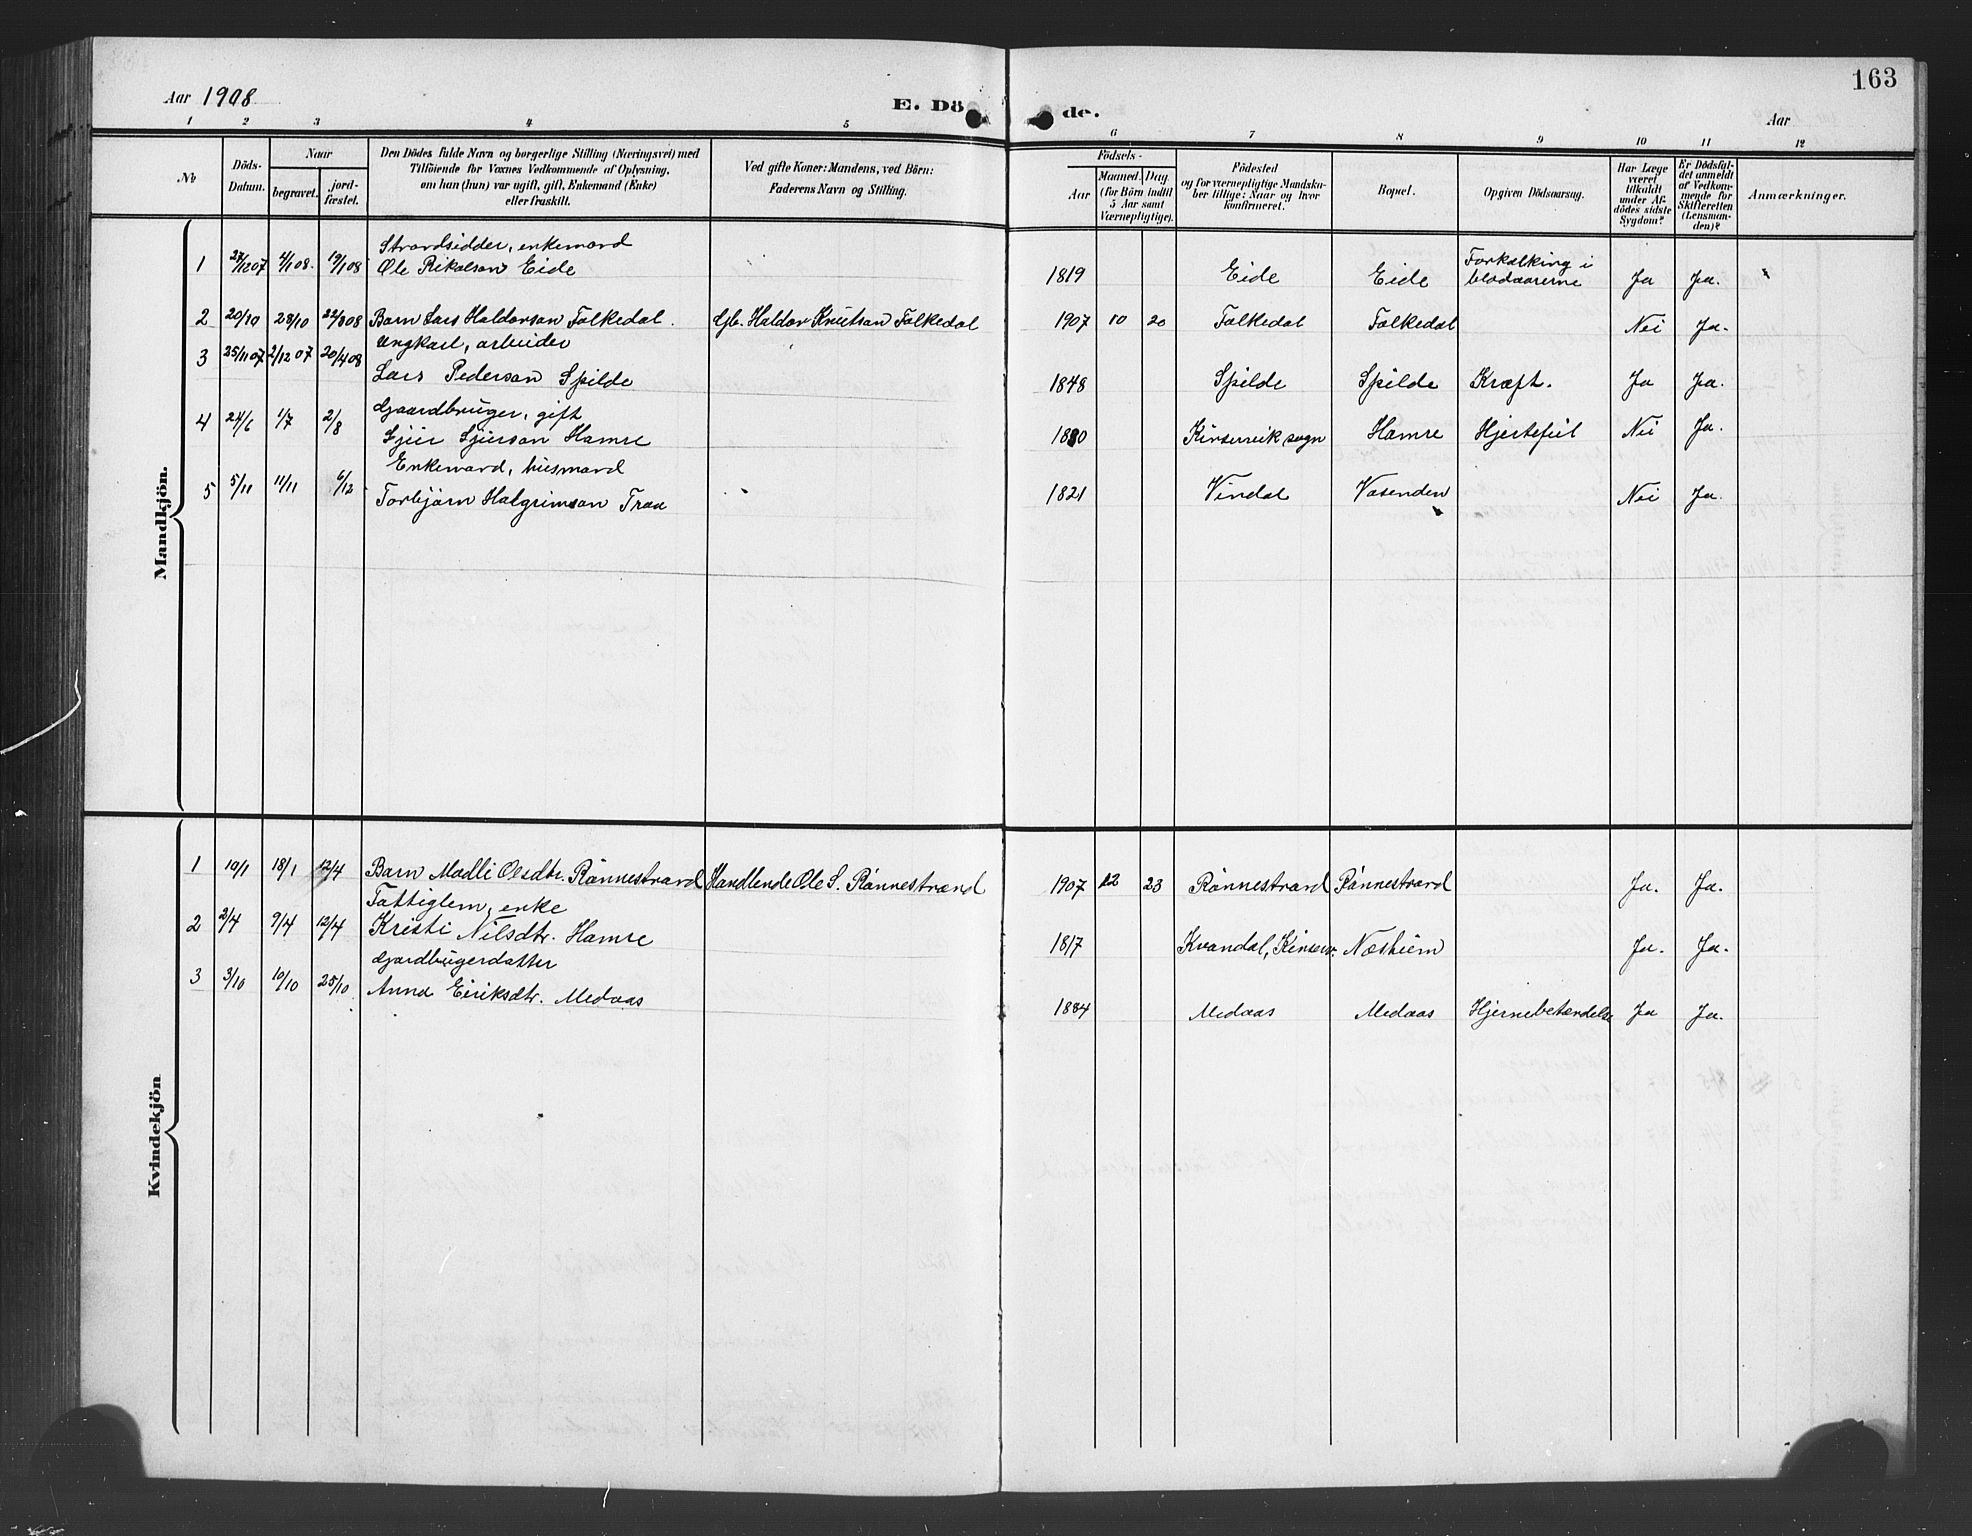 163
Aar 1908
E. Dö de.
Aar
1 2 3 4 5 6 7 8 9 10 11 12
No
Döds-Datum.
Naar
begravet. jord-fæstet.
Den Dödes fulde Navn og borgerlige Stilling (Næringsvei) med
Tilföiende for Voxnes Vedkommende af Oplysning,
om han (hun) var ugift, gift, Enkemand (Enke)
eller fraskilt.
Ved gifte Koner: Mandens, ved Börn:
Faderens Navn og Stilling.
Födsels-
Aar
Maaned. Dag
(for Börn indtil
5 Aar samt
Værnepligtige).
Födested
og for værnepligtige Mandska-
ber tillige: Naar og hvor
konfirmeret.
Bopæl.
Opgiven Dödsaarsag.
Har Læge
været
tilkaldt
under Af-
dödes sidste
Sygdom?
Er Dödsfal-
det anmeldt
af Vedkom-
mende for
Skifteretten
(Lensman-
den)?
Anmærkninger.
Mandkjön.
Strandsidder, enkemand
1 27/12 07 4/1 08. 19/1 08 Ole Rikolson Eide 1819 Eide Eide Forkalking i
blodaarerne Ja Ja.
2 20/10 28/10 22/3 08 Barn Lars Haldorson Folkedal. Gb. Haldor Knutson Folkedal 1907 10 20 Folkedal Folkedal Nei Ja.
Ungkarl, arbeider
3 25/11 07 2/12 07 20/4 08
Lars Pederson Spilde 1848 Spilde Spilde Kræft. Ja Ja.
Gaardbruger, gift
4 24/6 1/7 2/8
Sjur Sjurson Hamre 1880 Kinservik sogn Hamre Hjertefeil Nei Ja.
Enkemand, husmand
5 5/11 11/11 6/12 Torbjörn Halgrimson Traa 1821 Vindal Vasenden Nei Ja.
Kvindekjön
1 10/1 18/1 12/4 Barn Madli Olsdtr. Rönnestrand Handlende Ole S. Rönnestrand 1907 12 23 Rönnestrand Rönnestrand Ja. Ja.
Fattiglem, enke
2 2/4 9/4 12/4 Kristi Nilsdtr. Hamre 1817 Kvandal, Kinserv. Næsheim Ja. Ja.
Gardbrugerdatter
3 3/10 10/10 25/10 Anna Eiriksdtr. Medaas 1884 Medaas Medaas Hjernebetændelse Ja Ja.